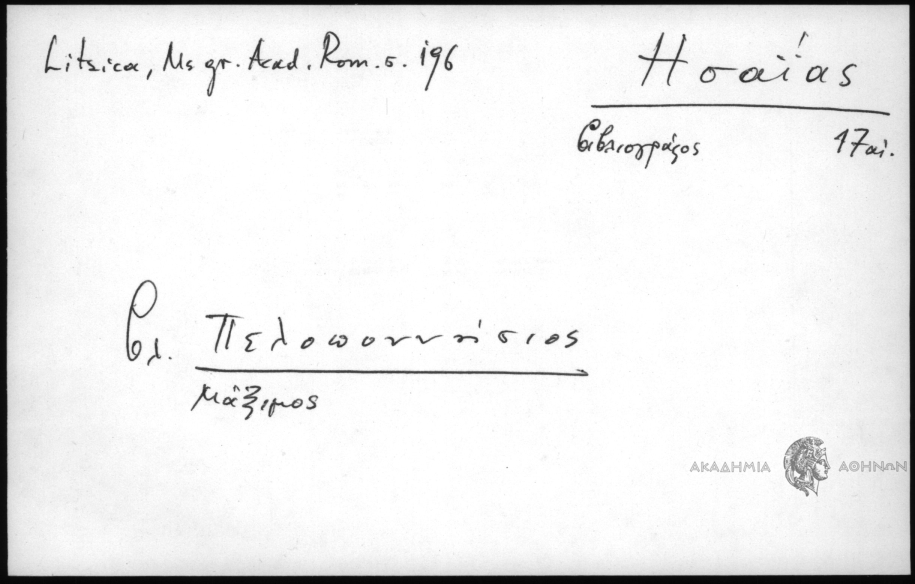 Litzica, Ms gr. Acad. Rom. σ. 196
Ησαΐας
βιβλιογράφος 17 αἰ.
βλ. Πελοποννήσιος
Μάξιμος
ΑΚΑΔΗΜΙΑ ΑΘΗΝΩΝ